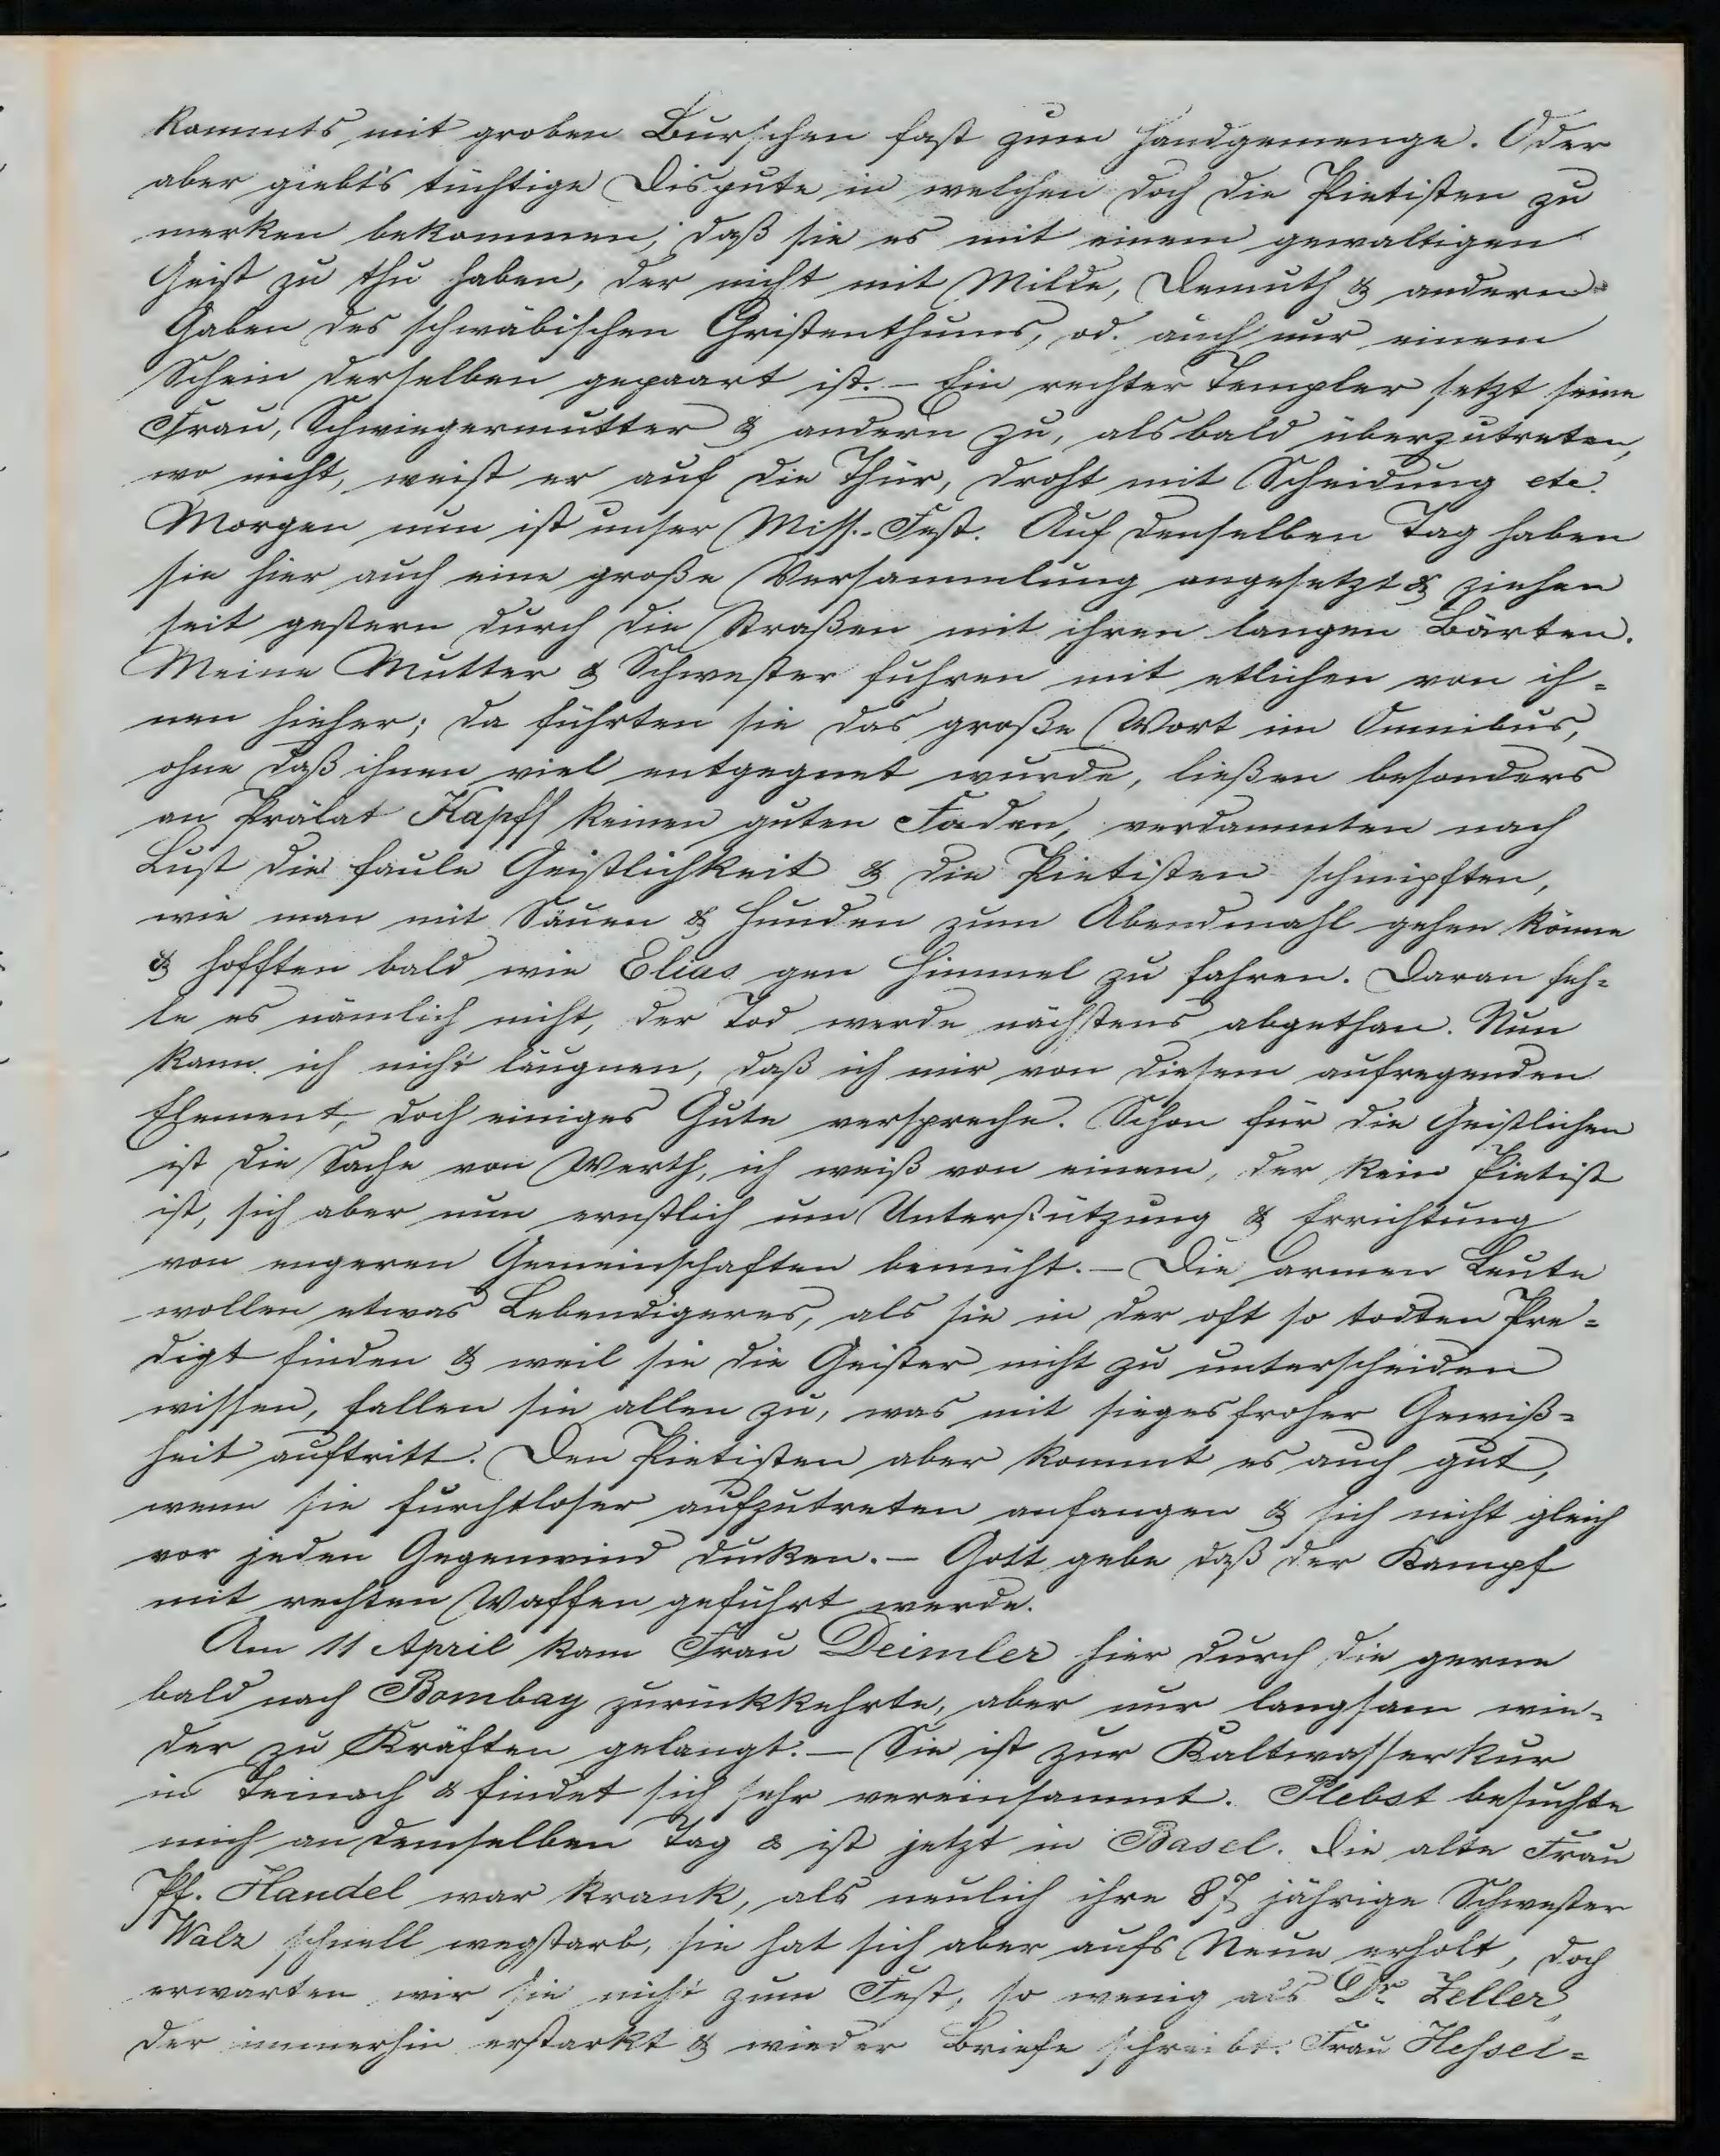 kommts mit groben Burschen fast zum Handgemenge. Oder
aber giebt's tüchtige Dispute in welchen doch die Pietisten zu
merken bekommen, daß sie es mit einem gewaltigen
Geist zu thu haben, der nicht mit Milde, Demuth & andern
Gaben des schwäbischen Christenthums, od. auch nur einem
Schein derselben gepaart ist. – Ein rechter Templer setzt seine
Frau, Schwiegermutter & andern zu, alsbald überzutreten,
wo nicht, weist er auf die Thür, droht mit Scheidung etc.
Morgen nun ist unser Miss.-Fest. Auf denselben Tag haben
sie hier auch eine große Versammlung angesetzt & ziehen
seit gestern durch die Straßen mit ihren langen Bärten.
Meine Mutter & Schwester fuhren mit etlichen von ih-
nen hieher; da führten sie das große Wort im Omnibus,
ohne daß ihnen viel entgegnet wurde, ließen besonders
an Prälat Kapff keinen guten Faden, verdammten nach
Lust die faule Geistlichkeit & die Pietisten schimpften,
wie man mit Säuen & Hunden zum Abendmahl gehen könne
& hofften bald wie Elias gen Himmel zu fahren. Daran feh-
le es nämlich nicht, der Tod werde nächstens abgethan. Nun
kann ich nicht läugnen, daß ich mir von diesem aufregenden
Element, doch einiges Gute verspreche. Schon für die Geistlichen
ist die Sache von Werth, ich weiß von einem, der kein Pietist
ist, sich aber nun ernstlich um Unterstützung & Errichtung
von engeren Gemeinschaften bemüht. – Die armen Leute
wollen etwas Lebendigeres, als sie in der oft so todten Pre-
digt finden & weil sie die Geister nicht zu unterscheiden
wissen, fallen sie allen zu, was mit siegesfroher Gewiß-
heit auftritt. Den Pietisten aber kommt es auch gut,
wenn sie furchtloser aufzutreten anfangen & sich nicht gleich
vor jeden Gegenwind ducken. – Gott gebe daß der Kampf
mit rechten Waffen geführt werde.
Am 11 April kam Frau Deimler hier durch die gerne
bald nach Bombay zurückkehrte, aber nur langsam wie-
der zu Kräften gelangt. – Sie ist zur Kaltwasserkur
in Teinach & findet sich sehr vereinsammt. Plebst besuchte
mich an demselben Tag & ist jetzt in Basel. Die alte Frau
Pf. Handel war krank, als neulich ihre 87 jährige Schwester
Walz schnell wegstarb, sie hat sich aber aufs Neue erholt, doch
erwarten wir sie nicht zum Fest, so wenig als Dr. Zeller,
der immerhin erstarkt & wieder Briefe schreibt. Frau Hessel-